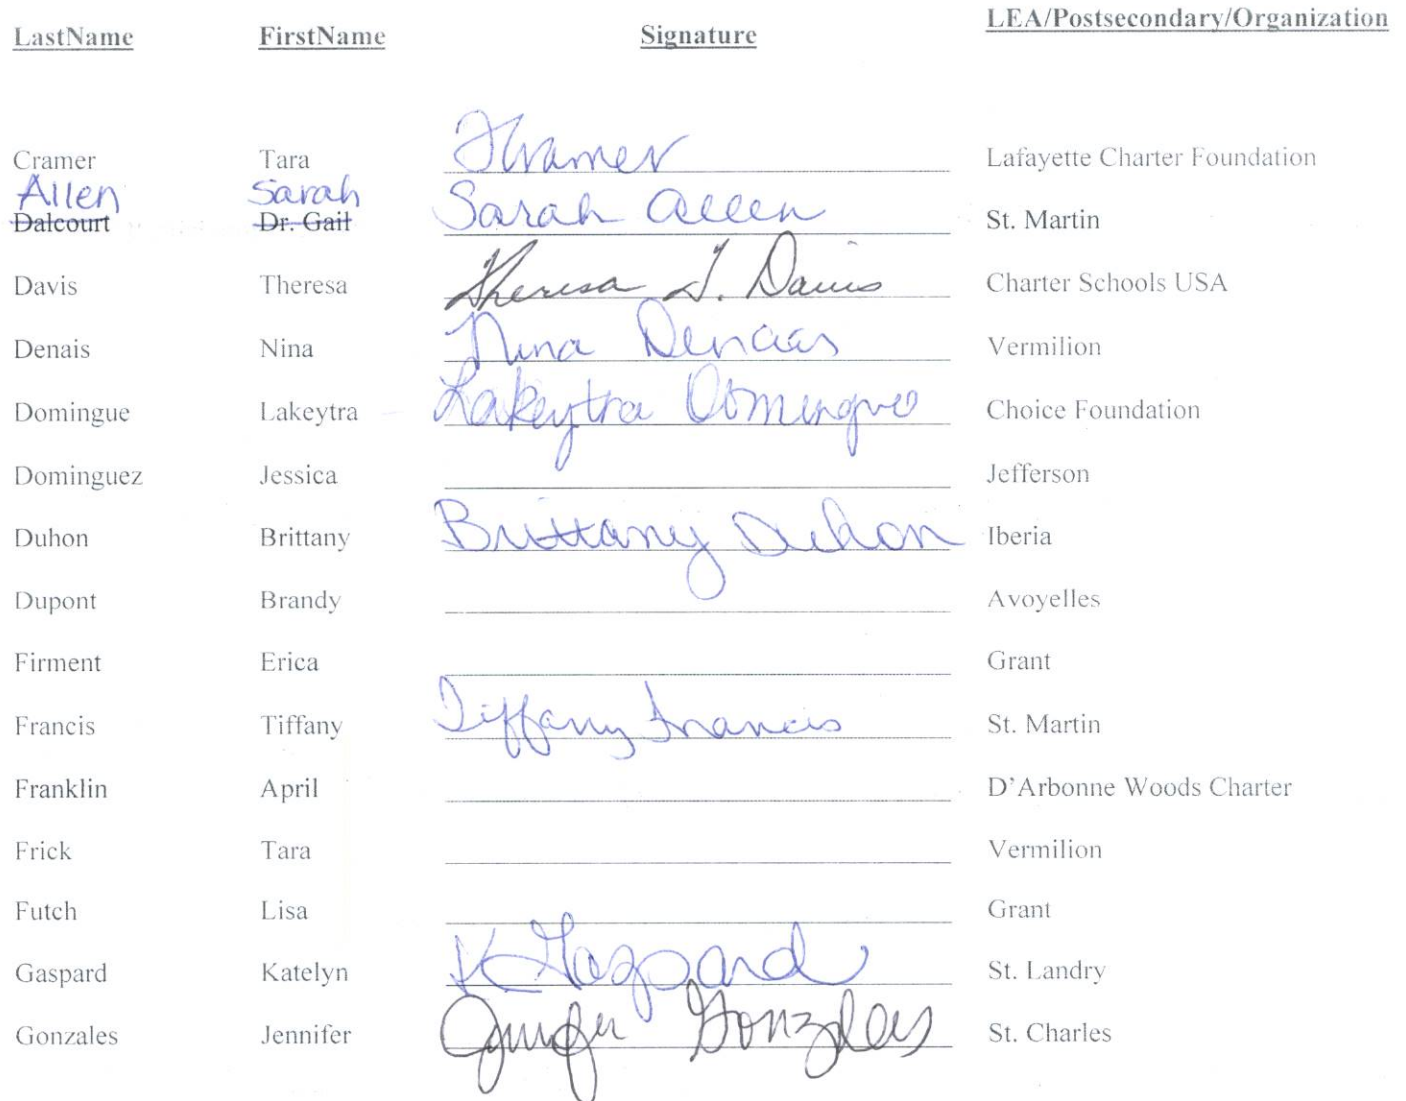 LastName FirstName Signature LEA/Postsecondary/Organization
Cramer Tara TCramer Lafayette Charter Foundation
Allen Sarah
Dalcourt Dr. Gail Sarah Allen St. Martin
Davis Theresa Theresa T. Davis Charter Schools USA
Denais Nina Nina Denais Vermilion
Domingue Lakeytra Lakeytra Domingue Choice Foundation
Dominguez Jessica Jefferson
Duhon Brittany Brittany Duhon Iberia
Dupont Brandy Avoyelles
Firment Erica Grant
Francis Tiffany Tiffany Francis St. Martin
Franklin April D'Arbonne Woods Charter
Frick Tara Vermilion
Futch Lisa Grant
Gaspard Katelyn K Gaspard St. Landry
Gonzales Jennifer Jennifer Gonzales St. Charles